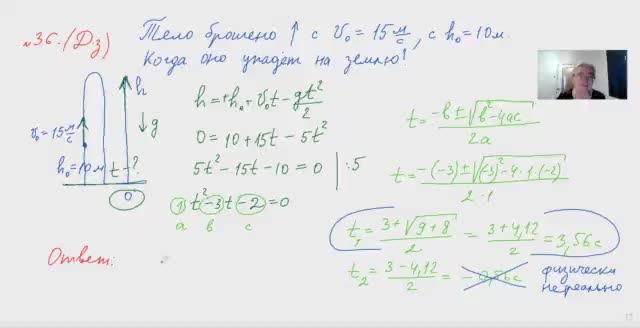 №36. (Дз)
Тело брошено ↑ с V₀ = 15 м/с, с h₀ = 10м.
Когда оно упадёт на землю?
h
g
V₀ = 15 м/с
h₀ = 10м
t - ?
0
h = +h₀ + V₀t - gt²/2
0 = 10 + 15t - 5t²
5t² - 15t - 10 = 0 | :5
1t² - 3t - 2 = 0
a b c
t = (-b ± √(b² - 4ac))/2a
t = (-(-3) ± √((-3)² - 4·1·(-2)))/2·1
t₁ = (3 + √(9 + 8))/2 = (3 + 4,12)/2 = 3,56 с
t₂ = (3 - 4,12)/2 = -0,56с физически
нереально
Ответ: